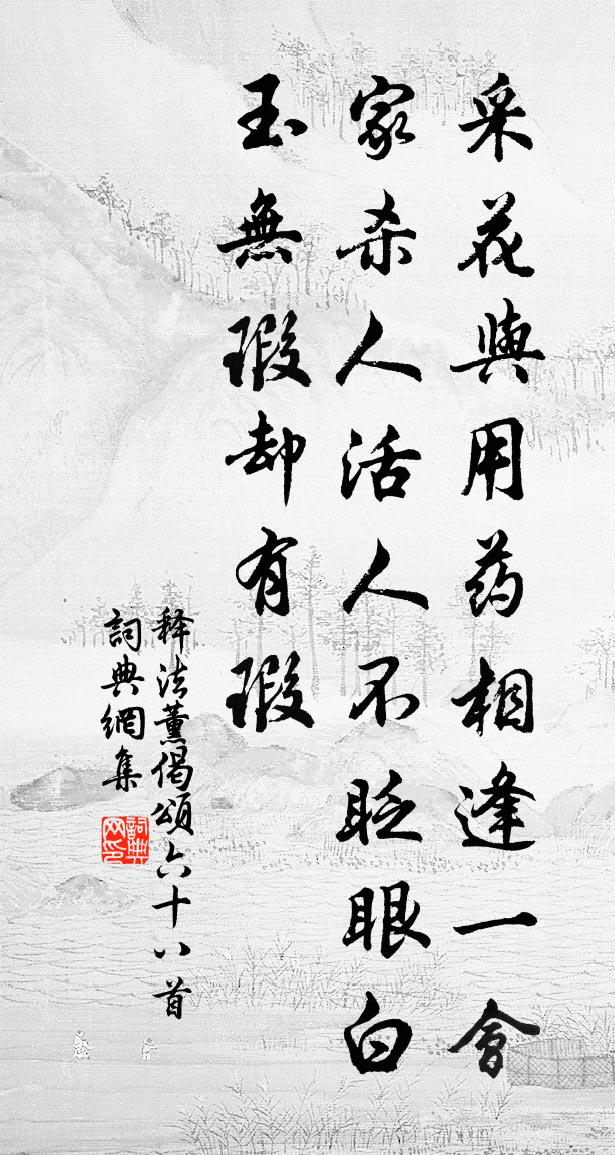 采花與用药相逢一會
家杀人活人不眨眼白
玉無瑕却有瑕
释法薰偈頌六十八首
詞典網集
詞典网印